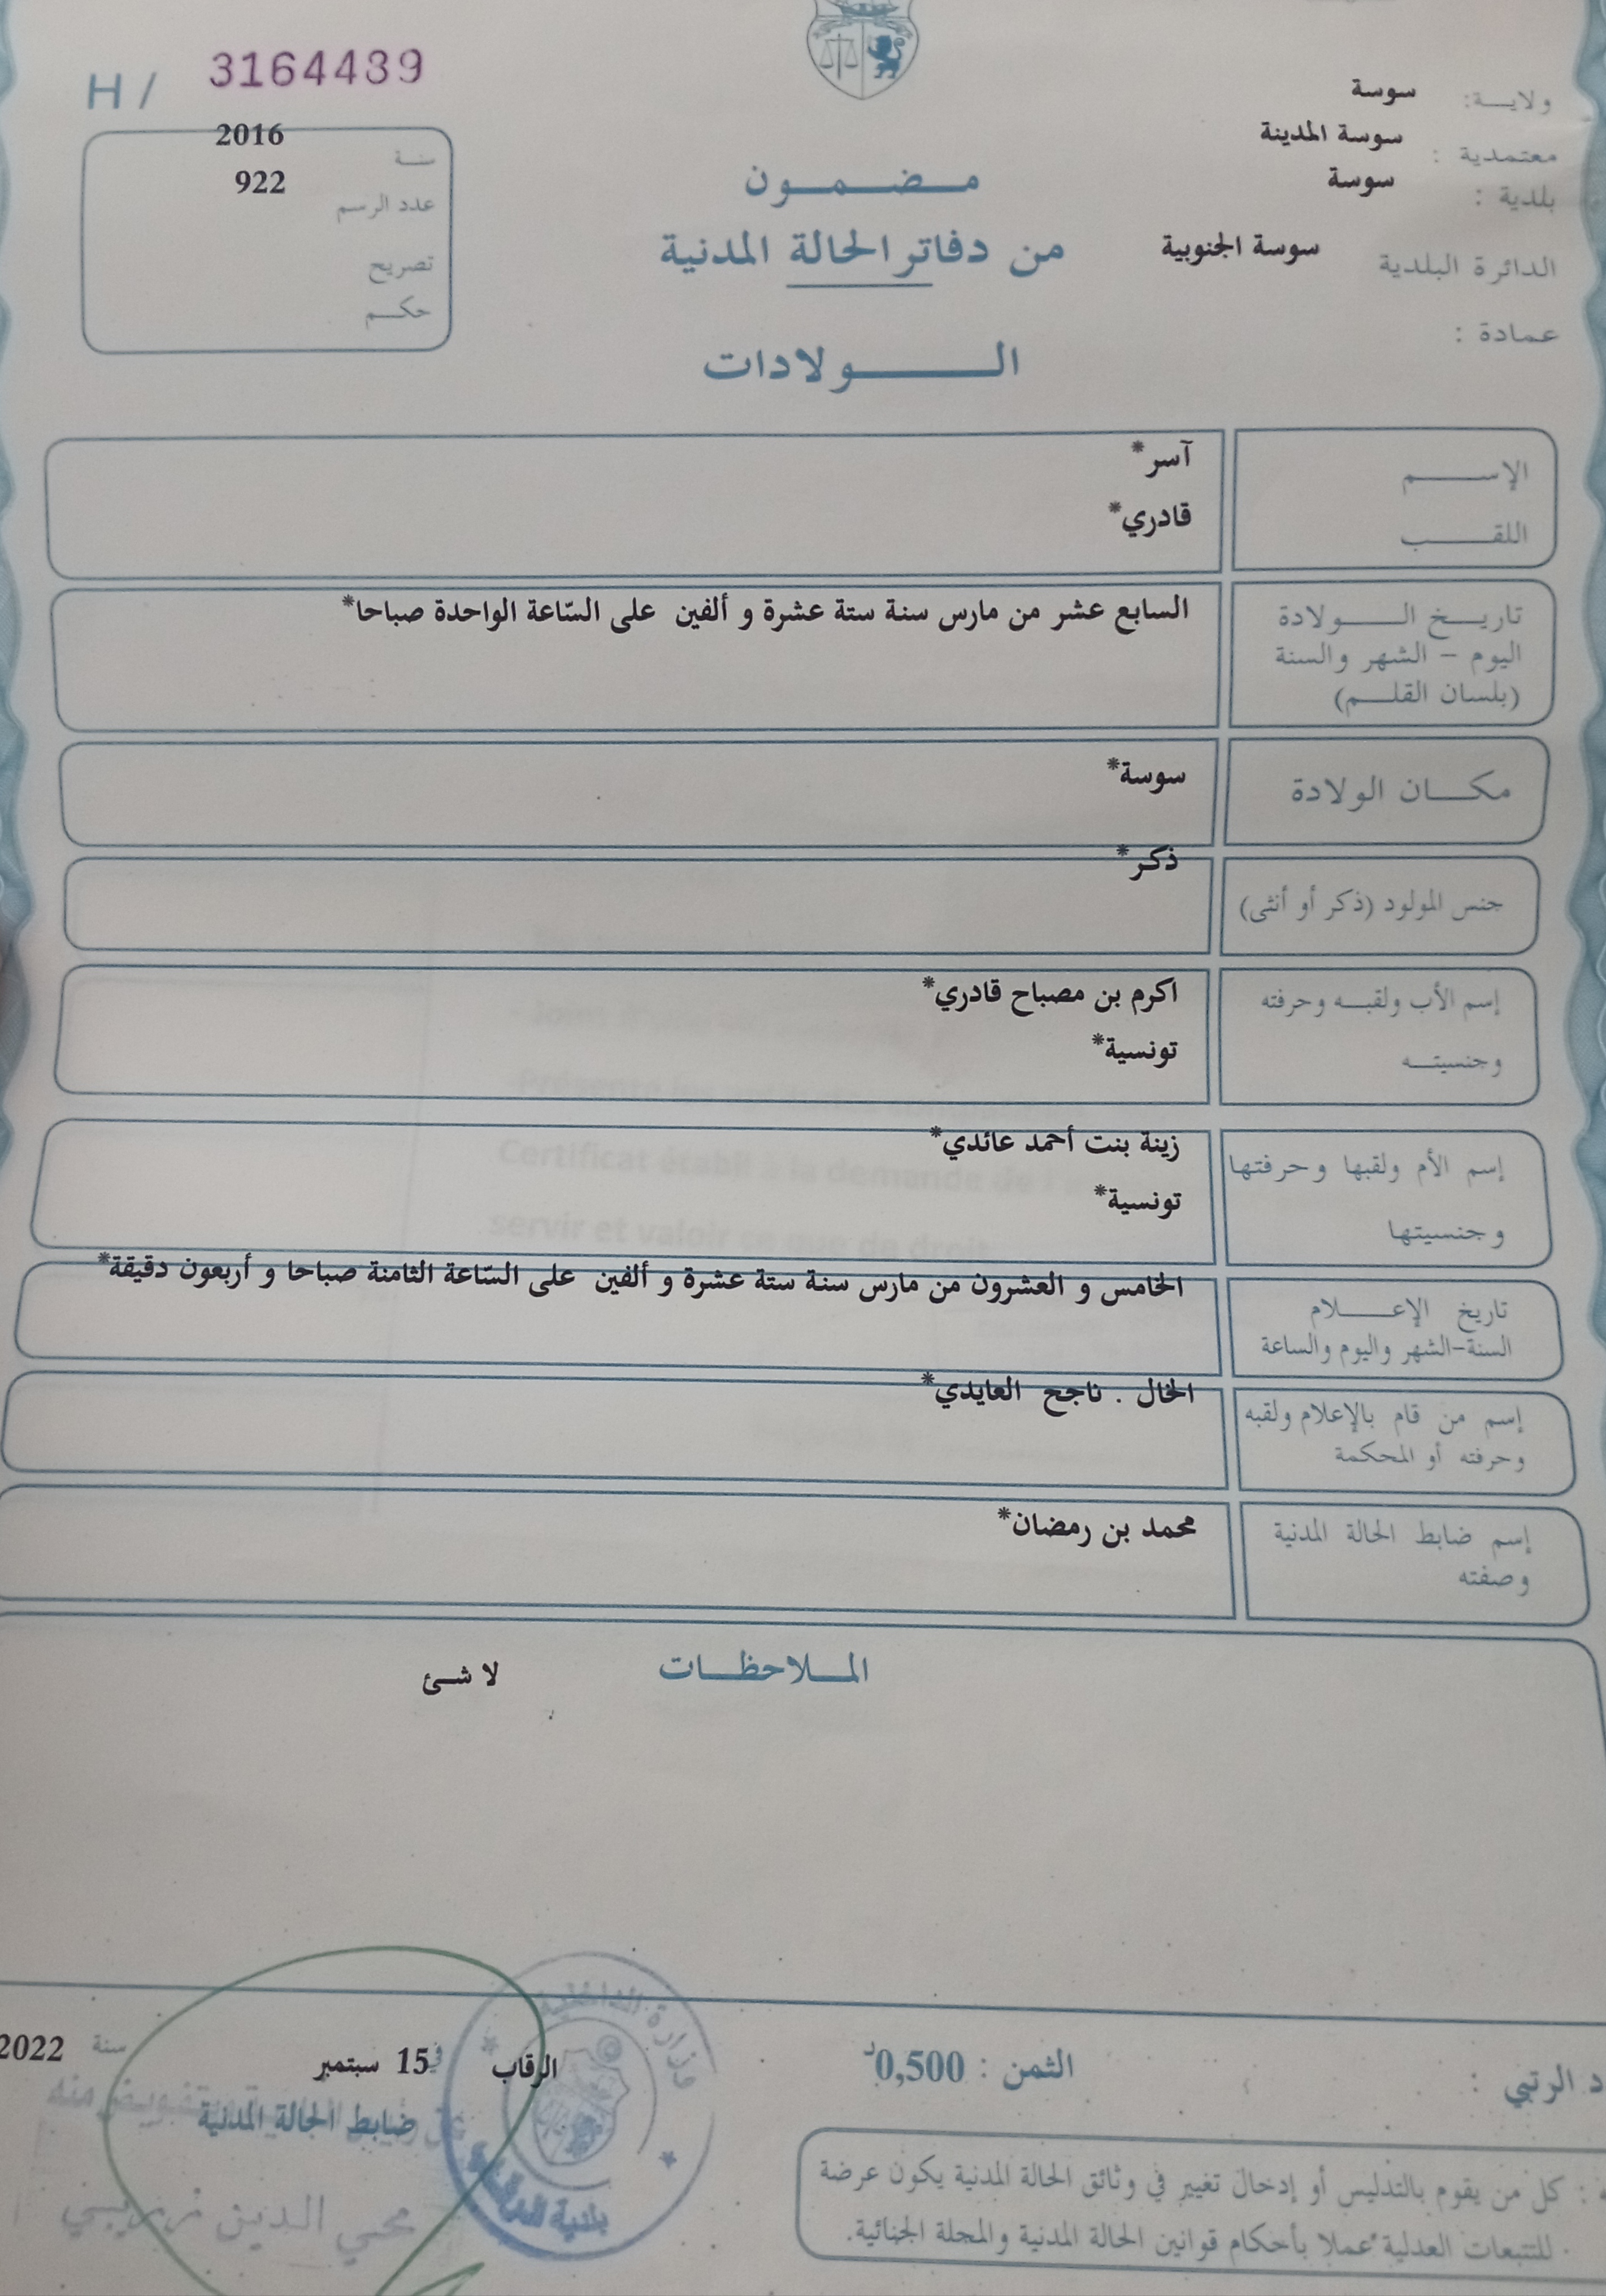 H / 3164439
ولاية: سوسة
معتمدية : سوسة المدينة
بلدية : سوسة
الدائرة البلدية سوسة الجنوبية
عمادة :
سنة 2016
عدد الرسم 922
تصريح
حكم
مضمون
من دفاتر الحالة المدنية
الولادات
الإسم آسر*
اللقب قادري*
تاريخ الولادة السابع عشر من مارس سنة ستة عشرة و ألفين على السّاعة الواحدة صباحا*
اليوم - الشهر والسنة
(بلسان القلم)
مكان الولادة سوسة*
جنس المولود (ذكر أو أنثى) ذكر*
إسم الأب ولقبه وحرفته اكرم بن مصباح قادري*
وجنسيته تونسية*
إسم الأم ولقبها وحرفتها زينة بنت أحمد عائدي*
وجنسيتها تونسية*
تاريخ الإعلام الخامس و العشرون من مارس سنة ستة عشرة و ألفين على السّاعة الثامنة صباحا و أربعون دقيقة*
السنة-الشهر واليوم والساعة
إسم من قام بالإعلام ولقبه الخال . ناجح العايدي*
وحرفته أو المحكمة
إسم ضابط الحالة المدنية محمد بن رمضان*
وصفته
الملاحظات لا شئ
د الرتبي :
الثمن : 0,500د
الرقاب في 15 سبتمبر سنة 2022
ضابط الحالة المدنية
وزارة الداخلية
بلدية الرقاب
محي الدين
: كل من يقوم بالتدليس أو إدخال تغيير في وثائق الحالة المدنية يكون عرضة
للتتبعات العدلية عملا بأحكام قوانين الحالة المدنية والمجلة الجنائية.